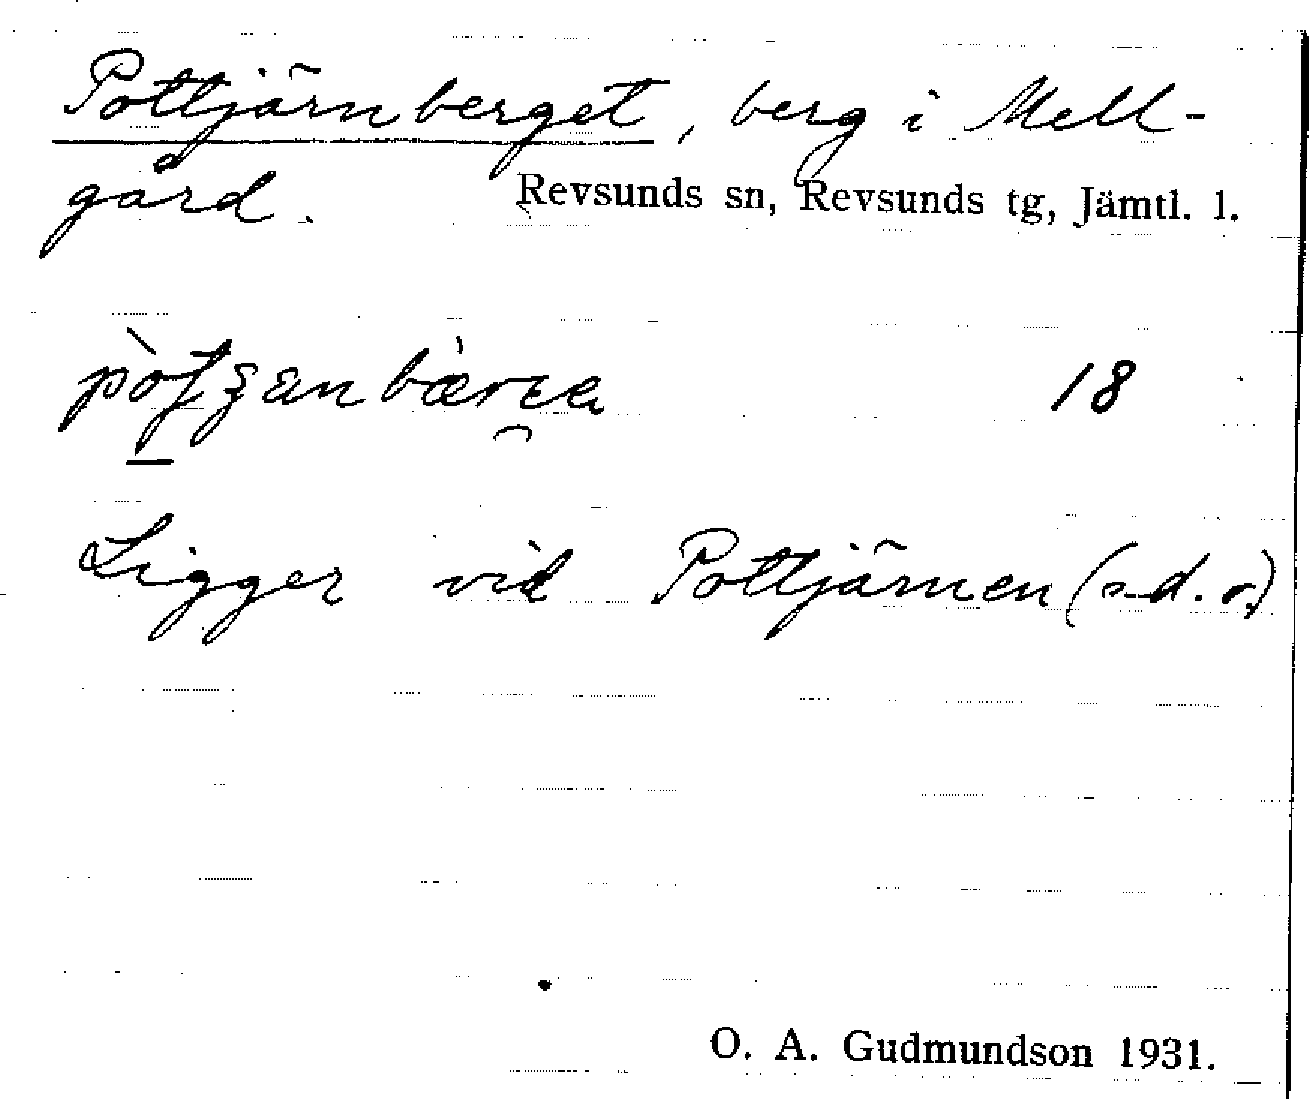 Pottjärnberget, berg i Mell-
gård.
Revsunds sn, Revsunds tg, Jämtl. l.
18
Ligger vid Pottjärnen (s. d. o.)
O. A. Gudmundson 1931.